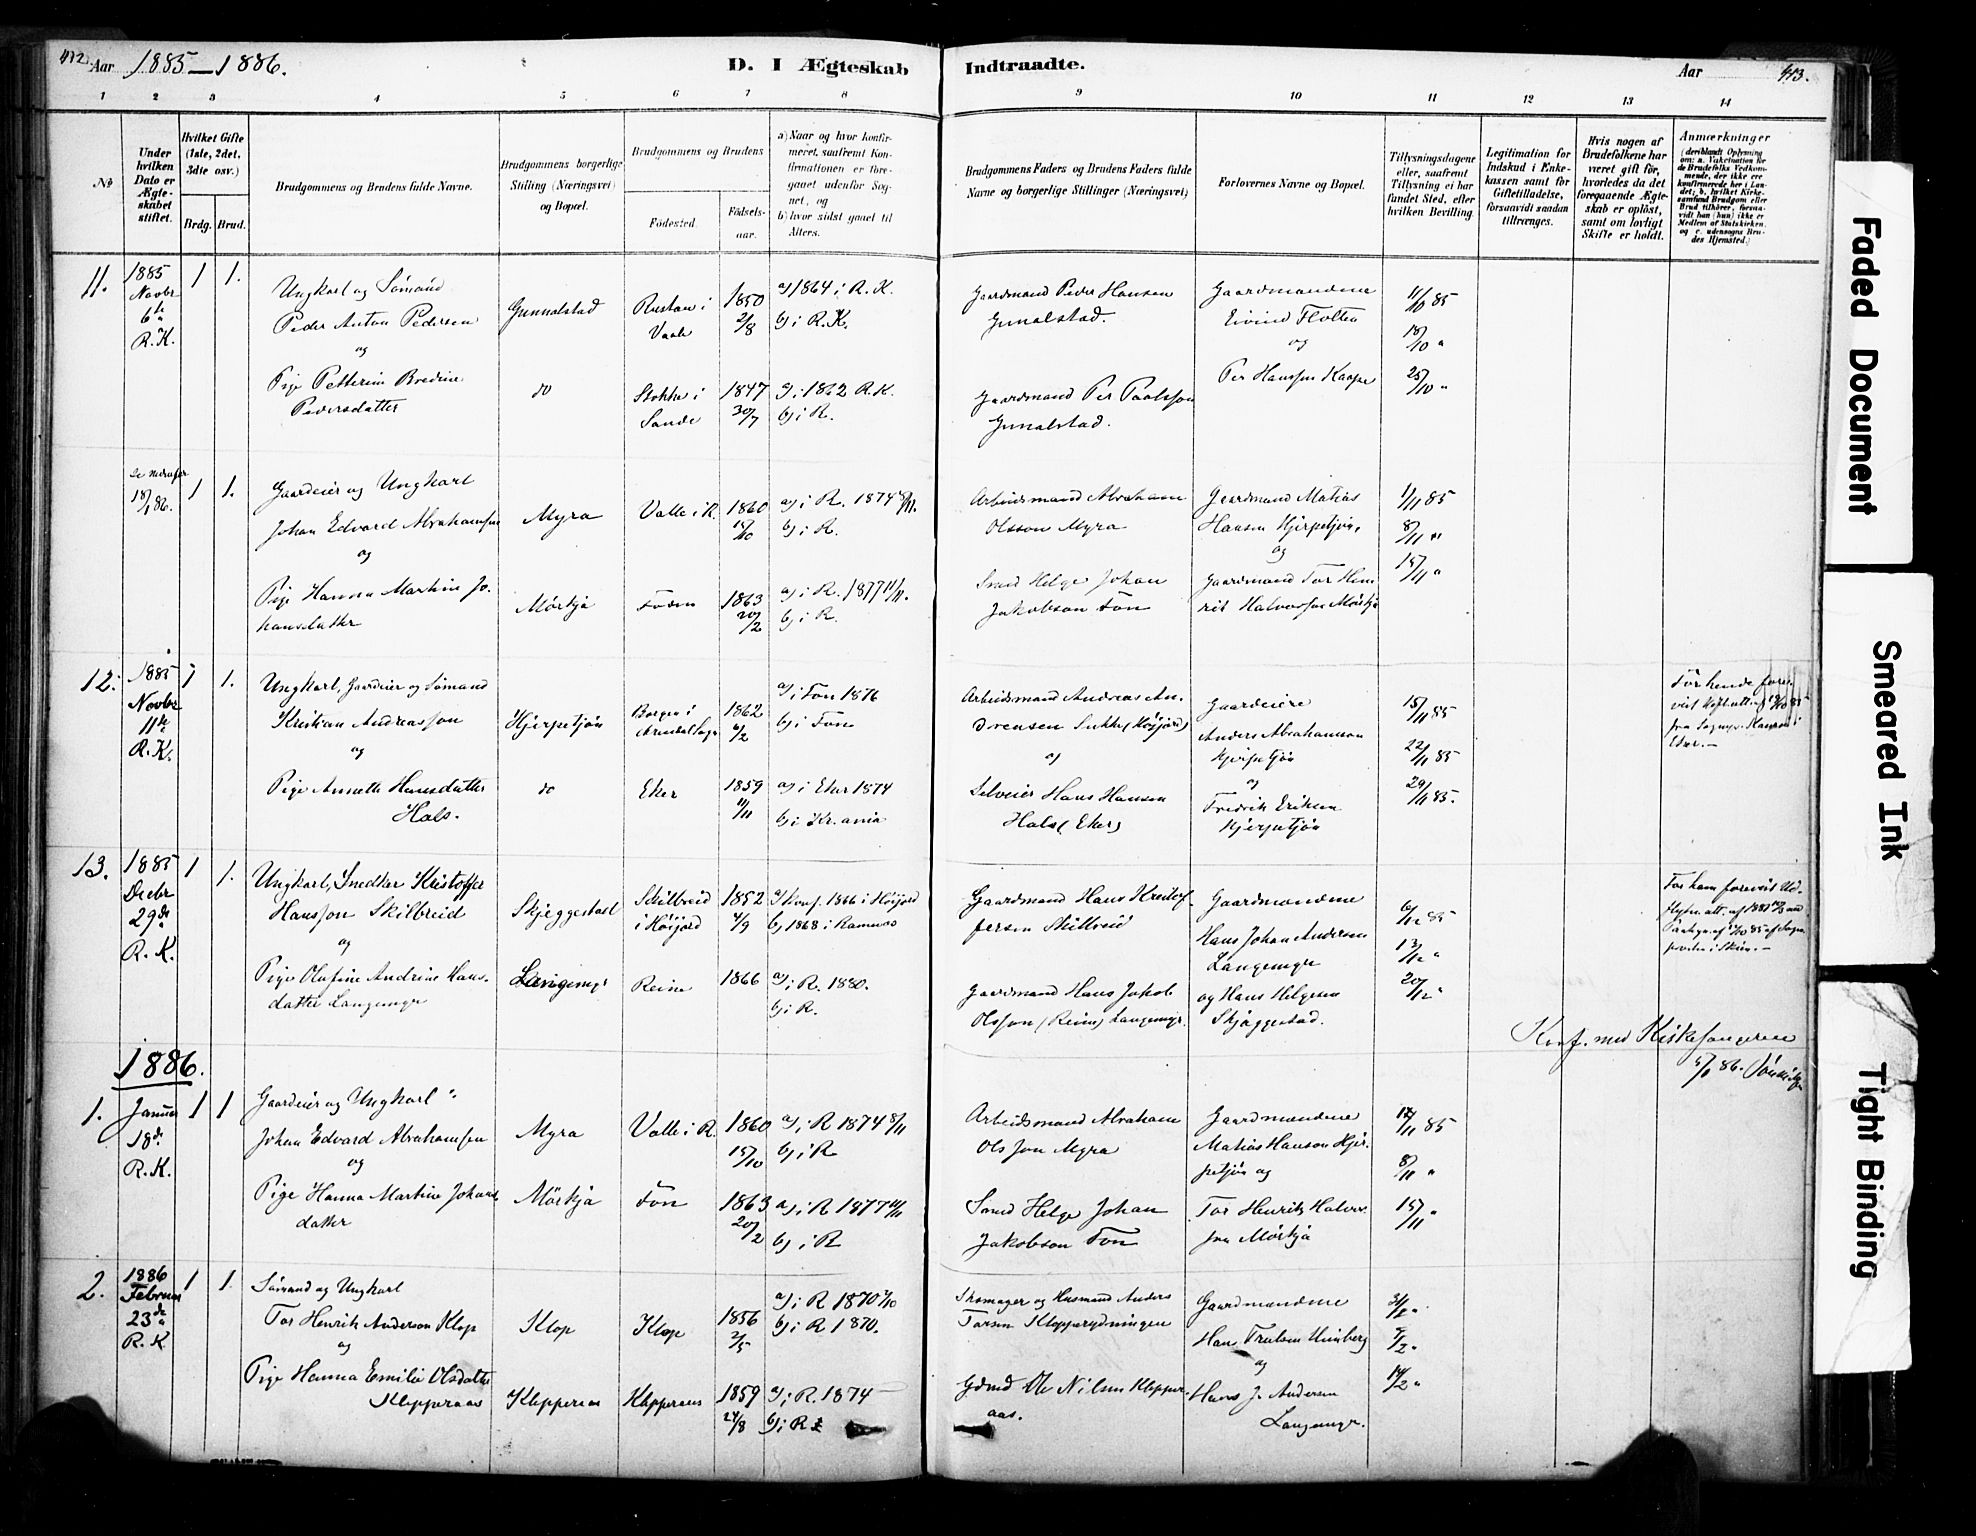 412.
Aar 1885-1886.
D. I Ægteskab
Indtraadte.
Aar
413.
1 2 3 4 5 6 7 8
9 10 11 12 13 14
No
Under hvilken Dato er Ægteskabet stiftet.
Hvilket Gifte (1ste, 2det, 3die osv.)
Brdg. Brud.
Brudgommens og Brudens fulde Navne.
Brudgommens borgerlige Stilling (Næringsvei) og Bopæl.
Brudgommens og Brudens
Fødested.
Fødsels-aar.
a) Naar og hvor konfirmeret, saafremt Konfirmationen er foregaaet udenfor Sognet, og
b) hvor sidst gaaet til Alters.
Brudgommens Faders og Brudens Faders fulde Navne og borgerlige Stillinger (Næringsvei)
Forlovernes Navne og Bopæl.
Tillysningsdagene eller, saafremt Tillysning ei har fundet Sted, efter hvilken Bevilling.
Legitimation for Indskud i Enkekassen samt for Giftetilladelse, forsaavidt saadan tiltrænges.
Hvis nogen af Brudefolkene har været gift før, hvorledes da det foregaaende Ægteskab er opløst, samt om lovligt Skifte er holdt.
Anmærkninger
(deriblandt Oplysning om: a. Vakcination for de Brudefolks Vedkommende, der ikke ere konfirmerede her i Landet; b. hvilket Kirkesamfund Brudgom eller Brud tilhører, forsaavidt han (hun) ikke er Medlem af Statskirken, og c. udensogns Brudes Hjemsted.)
11. 1885 Novbr 6te R.K. 1 1.
Ungkarl og Sømand
Peder Anton Pedersen
og
Pige Petterine Bredine
Pedersdatter
Gunnalstad
do
Rustan i Vaale
1850 2/8
a) 1864 i R.K.
b) i R.K.
Stokke i Sande
1847 30/7
a) i 1862 R.K.
b) i R.
Gaardmand Peder Hansen
Gunalstad.
Gaardmand Per Paalsson
Gunalstad.
Gaardmændene
Eivind Flotten
og
Per Hanssen Kaape
11/10 85
18/10 "
25/10 "
se nedenfor
18/1 86. 1 1.
Gaardeier og Ungkarl
Johan Edvard Abrahamsen
og
Pige Hanna Martine Jo-
hansdatter
Myra
Mørkjø
Valle i R.
1860 15/10
a) i R. 1874 8/11.
b) i R.
1863 20/2
a) i R. 1877 11/11.
b) i R.
Arbeidsmand Abraham
Olsson Myra
Smed Helge Johan
Jakobson Føn
Gaardmand Matias
Hansen Hjerpetjøn,
og
Gaardmand Tor Hen-
rik Halvorsson Mørkjø
1/11 85
8/11 "
15/11 "
12. 1885 Novbr 11te R.K. 1 1.
Ungkarl, Gaardeier og Sømand
Kristian Andreasson
og
Pige Annette Hansdatter
Hals.
Hjerpetjøn
do
Borgen i
1862 6/2
a) i Føn 1876
b) i Føn
Eker
1859 11/11
a) i Eker 1874
b) i Kr.ania
Arbeidsmand Andreas An-
drensen Sukke (Høijord)
og
Selveier Hans Hansen
Hals (Eker)
Gaardeiere
Anders Abrahamson
Hjerpetjøn
og
Fredrik Eriksen
Hjerpetjøn
15/11 85
22/11 85
29/11 85.
For hende fore-
13. 1885 Decbr 29de R.K. 1 1.
Ungkarl, Snedker Kristoffer
Hansson Skilbreid
og
Pige Olufine Andrine Hans-
datter Langemyr
Skjeggestad
Langemyr
Skilbreid i Høijord
1852 4/9
a) Konf. 1866 i Høijord
b) 1868 i Ramnes
Reine
1866
a) i R. 1880.
b) i R.
Gaardmand Hans Kristof-
fersen Skilbreid
Gaardmand Hans Jakob
Olsson (Reine) Langemyr.
Gaardmændene
Hans Johan Andersen
Langemyr
og Hans Helgesen
Skjæggestad.
6/12 85
13/12 "
20/12 "
For ham forevist Ud-
Konf. med Kirkesangeren
5/1 86.
1886.
1. Januar 18de R.K. 1 1
Gaardeier og Ungkarl
Johan Edvard Abrahamsen
og
Pige Hanna Martine Johans-
datter
Myra
Mørkjø
Valle i R.
1860 15/10
a) i R 1874 8/11
b) i R
Føn
1863 20/2
a) i R 1877 11/11
b) i R
Arbeidsmand Abraham
Olsson Myra
Smed Helge Johan
Jakobson Føn
Gaardmændene
Matias Hanson Hjer-
petjøn og
Tor Henrik Halvor-
sen Mørkjø
1/11 85
8/11 "
15/11 "
2. 1886 Februar 23de R.K. 1 1.
Sømand og Ungkarl
Tor Henrik Anderson Klop
og
Pige Hanna Emilie Olsdatter
Klopperaas
Klop
Klopperaas
Klop
1856 2/5
a) i R 1870 2/10
b) i R 1870.
Klopperaas
1859 24/8
a) i R. 1874
b) i R
Skomager og Husmand Anders
Torsen Klopperydningen
Gdmd Ole Nilsen Klopper-
aas.
Gaardmændene
Hans Trulsen Unneberg
og
Hans J. Andersen
Langemyr.
31/1 "
7/2 "
14/2 "
Faded Document
Smeared Ink
Tight Binding